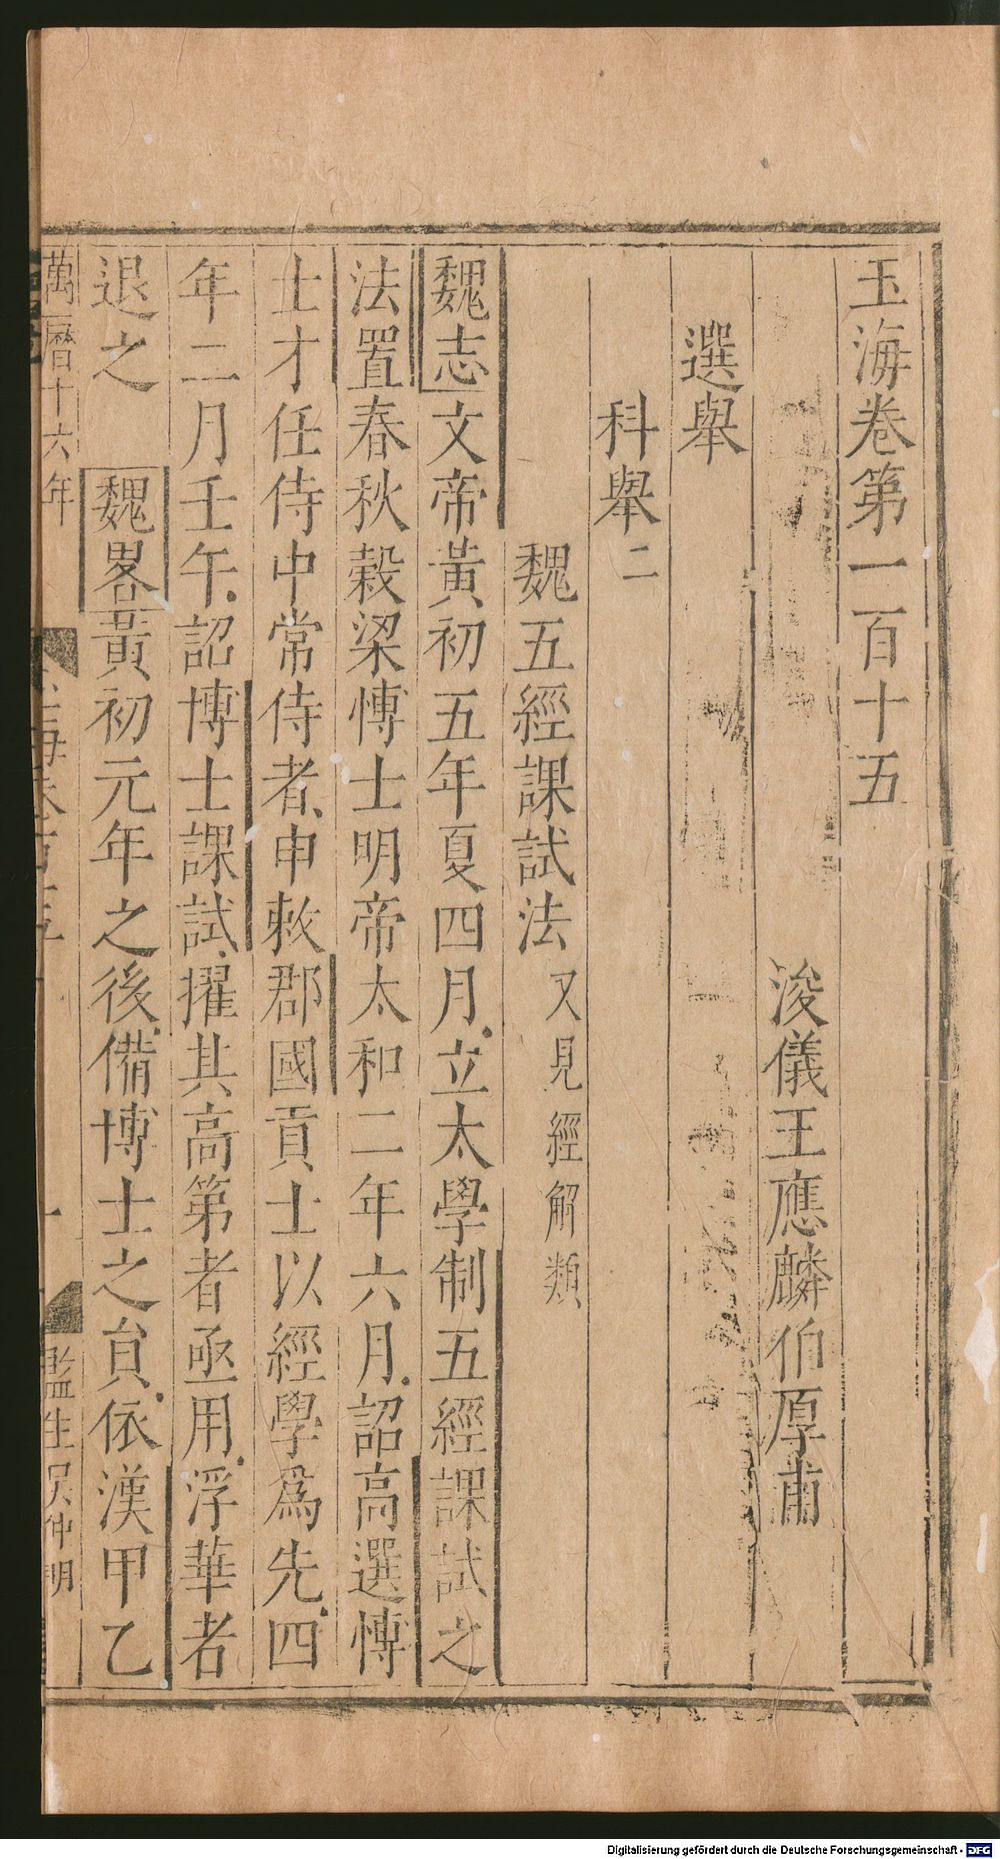 玉海卷第一百十五
浚儀王應麟伯厚甫
選舉
科舉二
魏五經課試法又見經解類
魏志文帝黃初五年夏四月立太學制五經課試之
法置春秋穀梁博士明帝太和二年六月詔高選博
士才任侍中常侍者申敕郡國貢士以經學爲先四
年二月壬午詔博士課試擢其高第者亟用浮華者
退之 魏畧黃初元年之後備博士之貟依漢甲乙
萬曆十六年
一
監生吴仲明
Digitalisierung gefördert durch die Deutsche Forschungsgemeinschaft - DFG